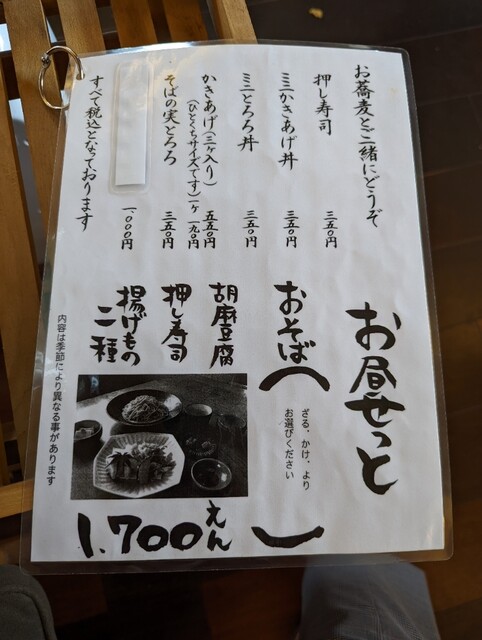 お蕎麦とご一緒にどうぞ
押し寿司 三五〇円
ミニかきあげ丼 三五〇円
ミニとろろ丼 三五〇円
かきあげ(三ヶ入り) 五五〇円
(ひとくちサイズです)一ケ 一九〇円
そばの実とろろ 三五〇円
一、〇〇〇円
すべて税込となっております
お昼せっと
おそば(ざる、かけ、より
お選びください)
胡麻豆腐
押し寿司
揚げもの
二種
1,700えん
内容は季節により異なる事があります